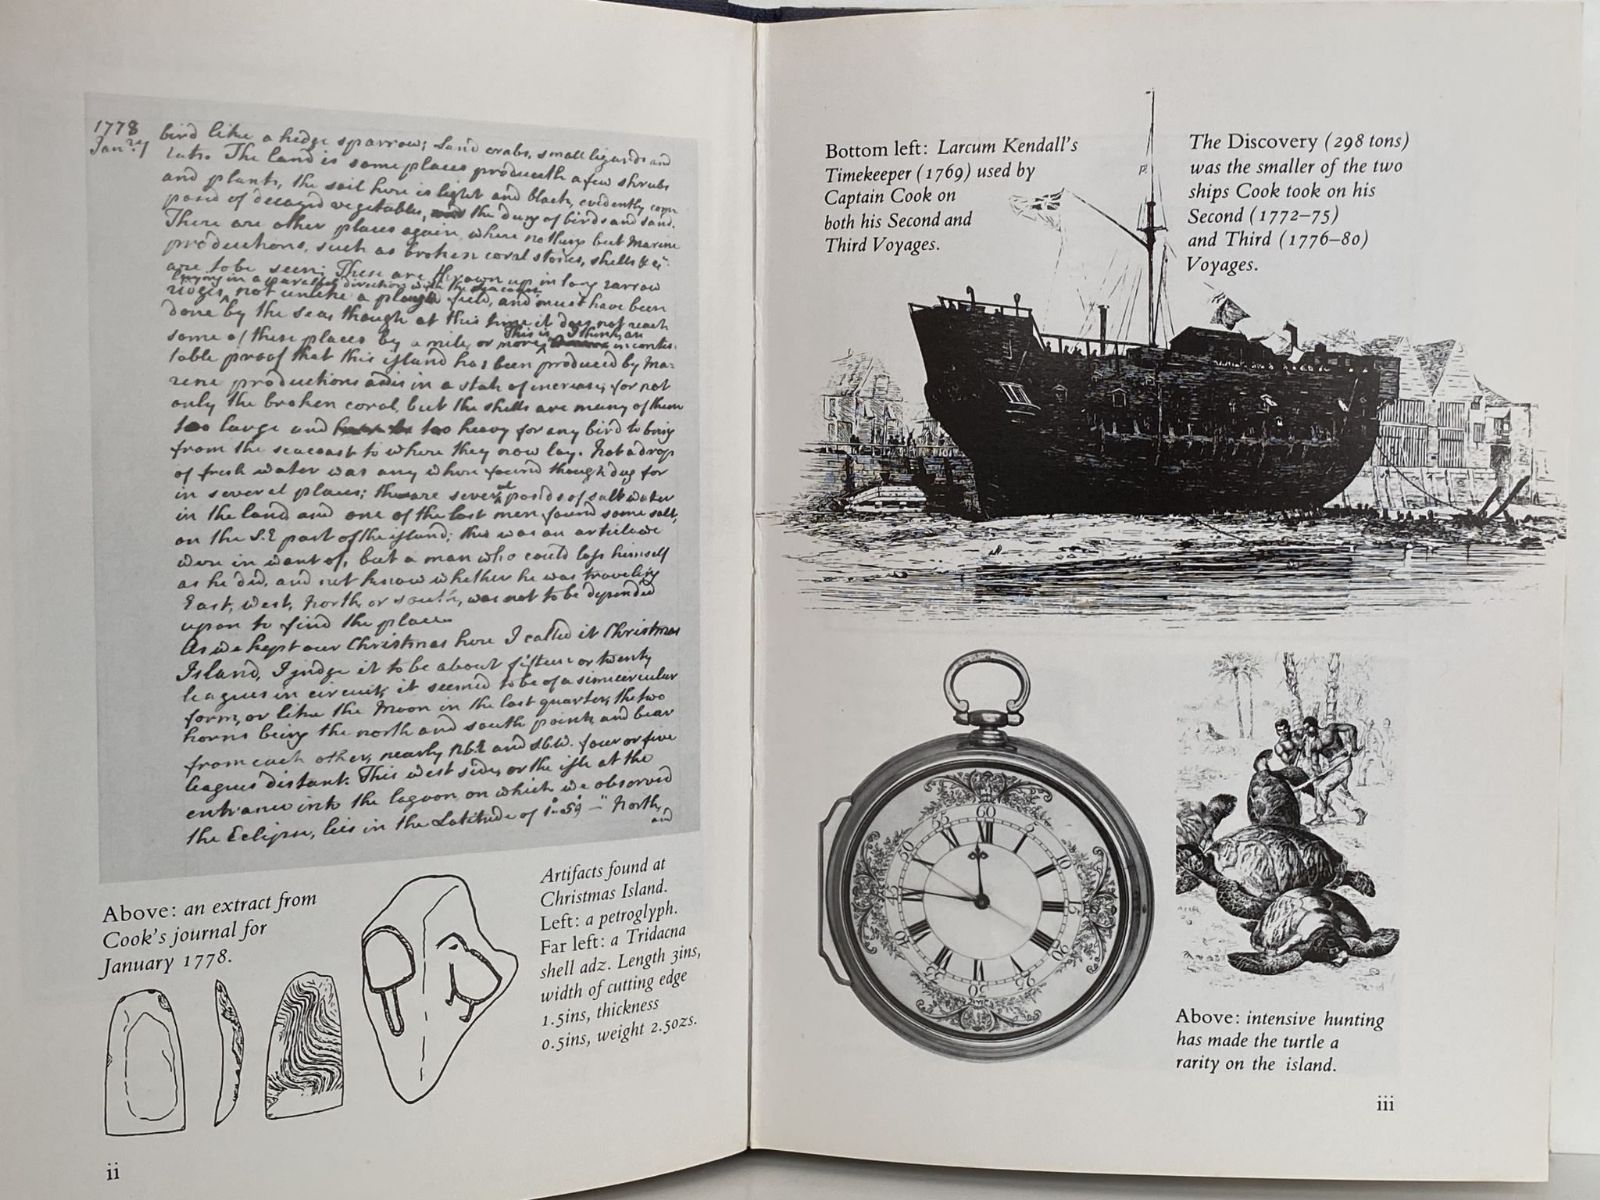 1778
Jan.ry
bird like a hedge sparrow; Land crabs, small lizards and
rats. The land is some places produceth a few shrubs
and plants, the soil here is light and black, evidently com
posed of decayed vegetables, the dung of birds and sand.
There are other places again, where nothing but Marine
productions, such as broken coral stones, shells &c
are to be seen; These are thrown up in long narrow
laying in a parallel direction with the sea coast
ridges, not unlike a plough field, and must have been
done by the sea, though at this time it does not reach
This is, I think, an
some of these places by a mile or more, incontes
table proof that this island has been produced by Ma
rene productions and is in a state of increase, for not
only the broken coral, but the shells are many of them
too large and too heavy for any bird to bring
from the seacoast to where they now lay. Not a drop
of fresh water was any where found though dug for
in several places; several ponds of salt water
in the land and one of the lost men found some salt,
on the S.E part of the island; this was an article we
were in want of, but a man who could lose himself
as he did, and not know whether he was traveling
East, West, North, or South, was not to be depended
upon to find the place
As we kept our Christmas here I called it Christmas
Island, I judge it to be about fifteen or twenty
leagues in circuit, it seemed to be of a simicircular
form, or like the Moon in the last quarter, the two
horns being the north and south points and bear
from each other, nearly NbE and SbW. four or five
leagues distant. This west side, or the isle at the
entrance into the lagoon on which we observed
the Eclipse, lies in the Latitude of 1° 59' — " North,
and
Above: an extract from
Cook's journal for
January 1778.
Artifacts found at
Christmas Island.
Left: a petroglyph.
Far left: a Tridacna
shell adz. Length 3ins,
width of cutting edge
1.5ins, thickness
0.5ins, weight 2.50zs.
ii
Bottom left: Larcum Kendall's
Timekeeper (1769) used by
Captain Cook on
both his Second and
Third Voyages.
The Discovery (298 tons)
was the smaller of the two
ships Cook took on his
Second (1772–75)
and Third (1776–80)
Voyages.
60
5
10
15
25
30
40
45
50
55
Above: intensive hunting
has made the turtle a
rarity on the island.
iii